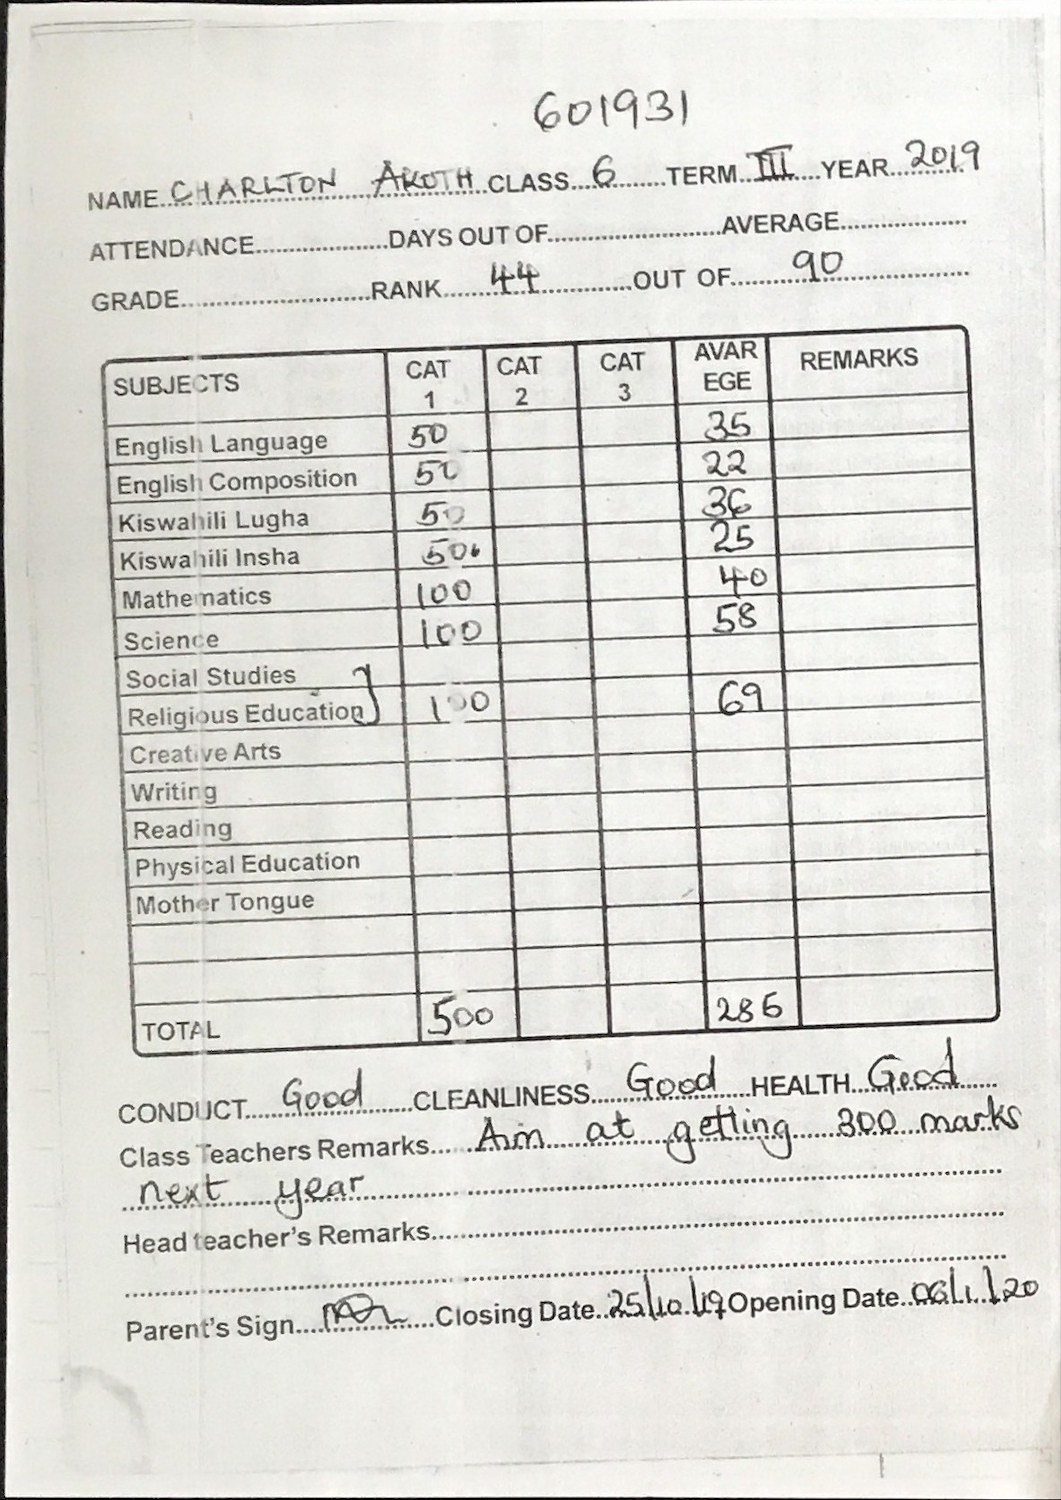 601931
NAME CHARLTON AKOTH CLASS 6 TERM III YEAR 2019
ATTENDANCE DAYS OUT OF AVERAGE
GRADE RANK 44 OUT OF 90
SUBJECTS CAT 1 CAT 2 CAT 3 AVAR EGE REMARKS
English Language 50 35
English Composition 50 22
Kiswahili Lugha 50 36
Kiswahili Insha 50 25
Mathematics 100 40
Science 100 58
Social Studies
Religious Education 100 69
Creative Arts
Writing
Reading
Physical Education
Mother Tongue
TOTAL 500 285
CONDUCT Good CLEANLINESS Good HEALTH Good
Class Teachers Remarks Aim at getting 300 marks
next year
Head teacher's Remarks
Parent's Sign Closing Date 25/10/19 Opening Date 06/1/20